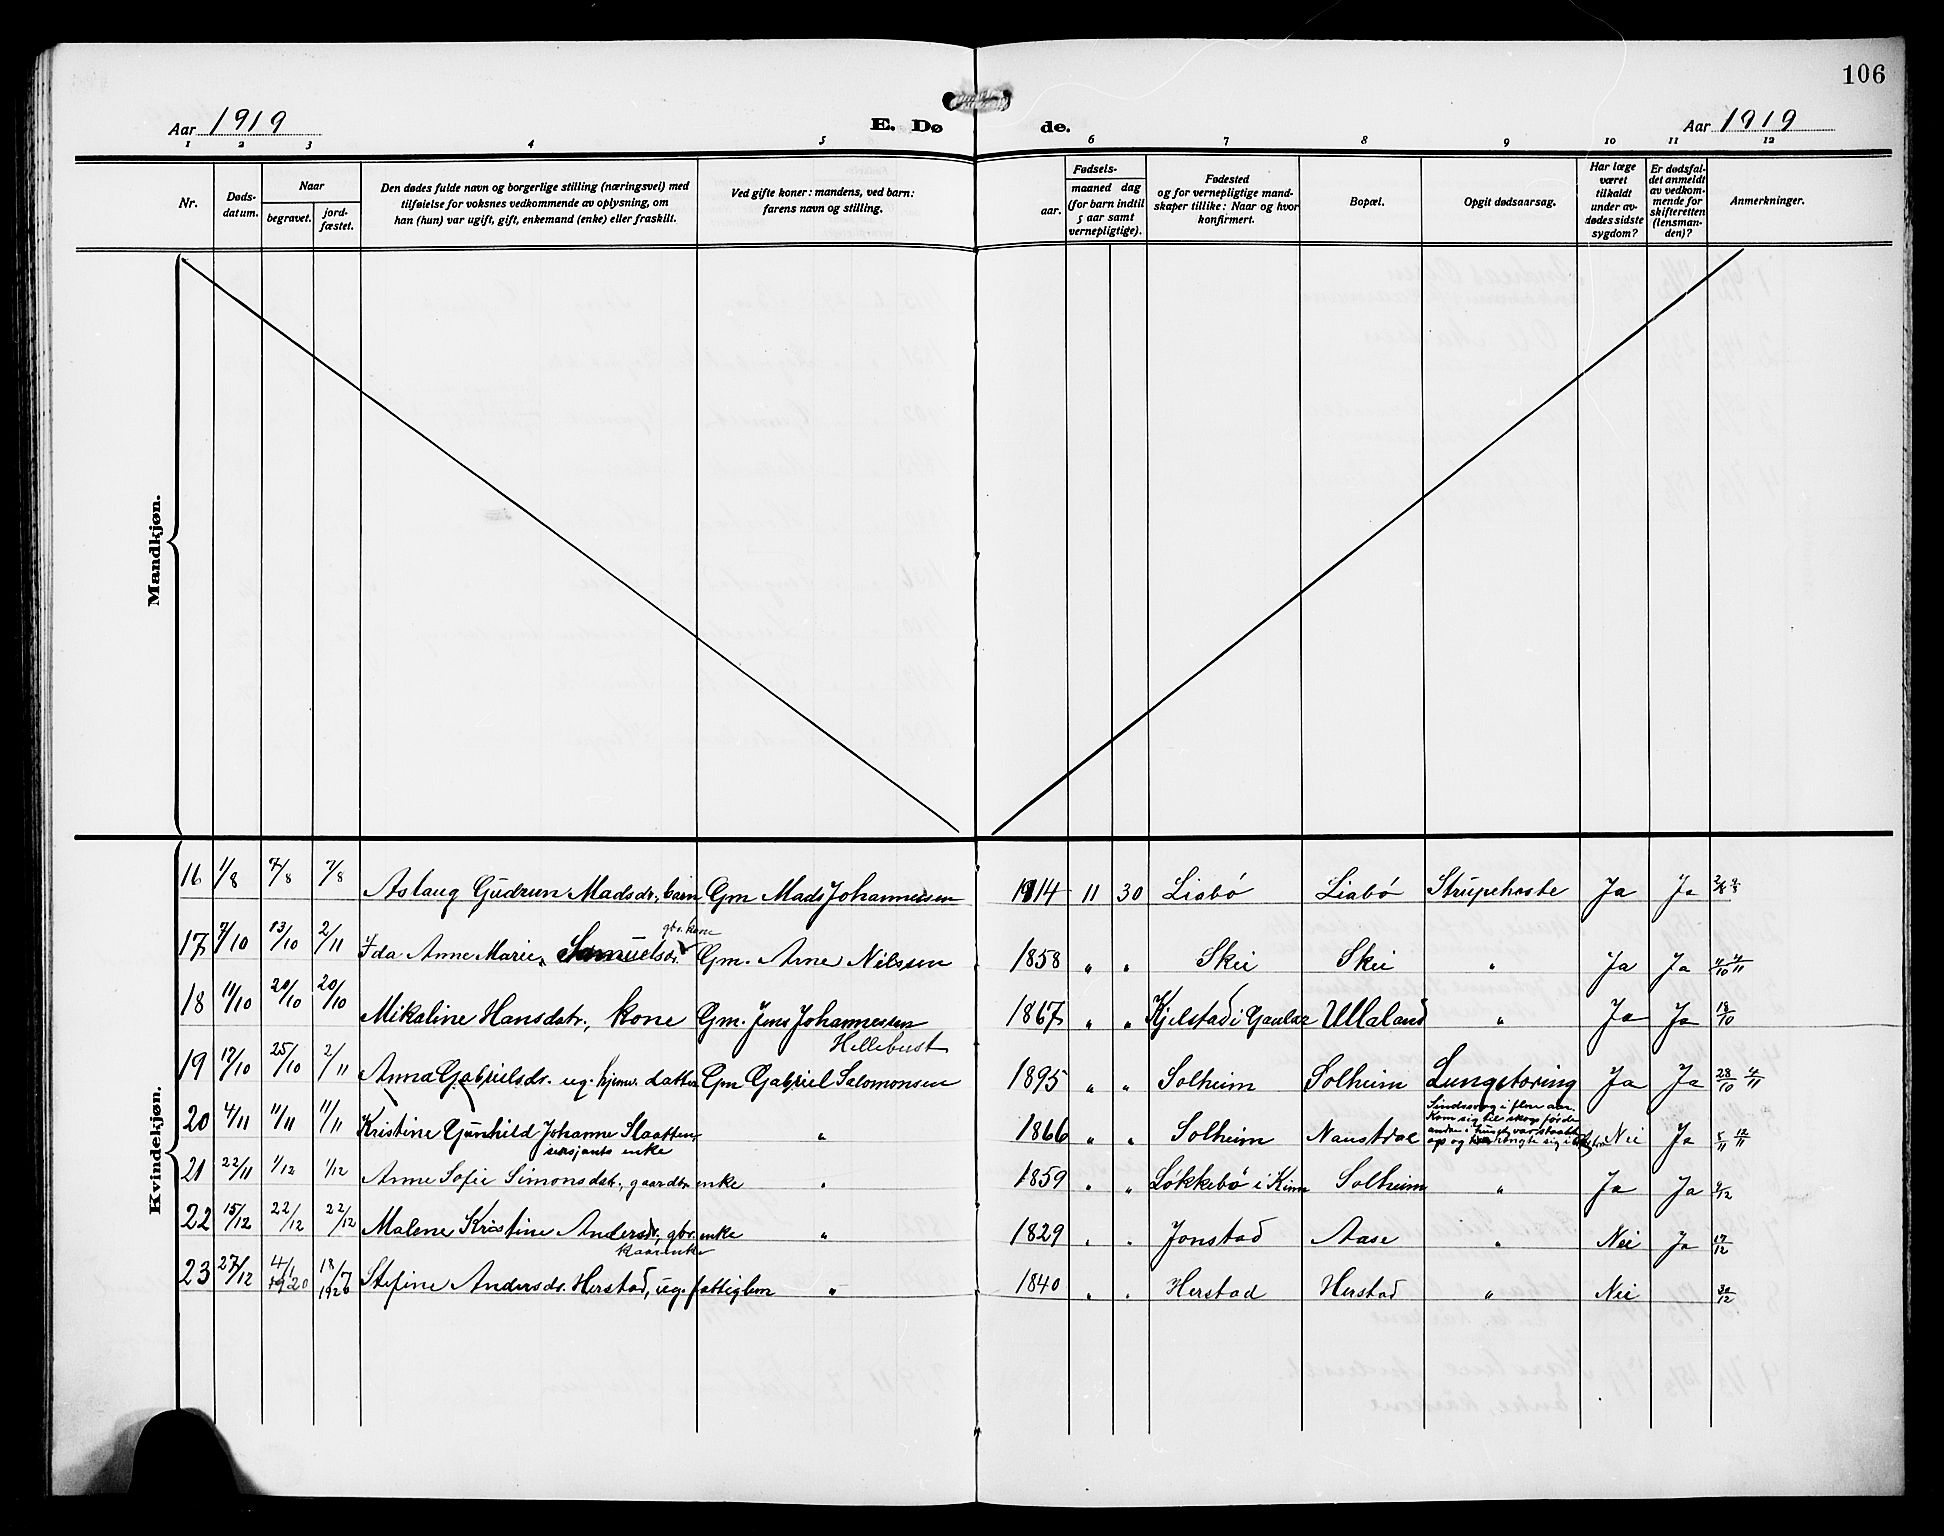 106
Aar 1919 E. Dø de. Aar 1919
1 2 3 4 5 6 7 8 9 10 11 12
Nr. Døds-datum. Naar begravet. jord-fæstet. Den dødes fulde navn og borgerlige stilling (næringsvei) med tilføielse for voksnes vedkommende av oplysning, om han (hun) var ugift, gift, enkemand (enke) eller fraskilt. Ved gifte koner: mandens, ved barn: farens navn og stilling. Fødsels- aar. maaned dag (for barn indtil 5 aar samt vernepligtige). Fødested og for vernepligtige mand-skaper tillike: Naar og hvor konfirmert. Bopæl. Opgit dødsaarsag. Har læge været tilkaldt under av-dødes sidste sygdom? Er dødsfal-det anmeldt av vedkom-mende for skifteretten (lensman-den)? Anmerkninger.
Mandkjøn.
Kvindekjøn.
16 1/8 7/8 7/8 Aslaug Gudrun Madsdr., barn Gm Mads Johannessen 1914 11 30 Liabö Liabö Strupehoste Ja Ja
gbr. kone
17 7/10 13/10 2/11 Ida Anne Marie Samuelsdr. Gm. Arne Nilssen 1858 " " Skei Skei " Ja Ja 4/11
18 11/10 20/10 20/10 Mikaline Hansdatr., kone Gm. Jens Johannessen 1867 " " Kjelstad i Gaular Ullaland " Ja Ja 18/10
Hellebust
19 17/10 25/10 2/11 Anna Gabrielsdr. ug. hjemv. datter Gm Gabriel Salomonsen 1895 " " Solheim Solheim Lungetæring Ja Ja 28/10 4/11
20 4/11 11/11 11/11 Kristine Gunhild Johanne Slaatten, " 1866 " " Solheim Naustdal Sindssvag i flere aar. Kom sig til skogs förend andre i huset var staat op og hængte sig i Nei Ja 5/11 12/11
sersjants enke
21 22/11 1/12 1/12 Anne Sofie Simonsdat., gaardbr. enke " 1859 " " Løkkebö i Kinn Solheim " Ja Ja
22 15/12 22/12 22/12 Malene Kristine Andersdr., gbr. enke " 1829 " " Jonstad Aase " Nei Ja 17/12
kaarenke
23 27/12 4/1 1920 18/7 1920 Stefine Andersdr. Herstad, ug. fattiglem " 1840 " " Herstad Herstad " Nei 30/12